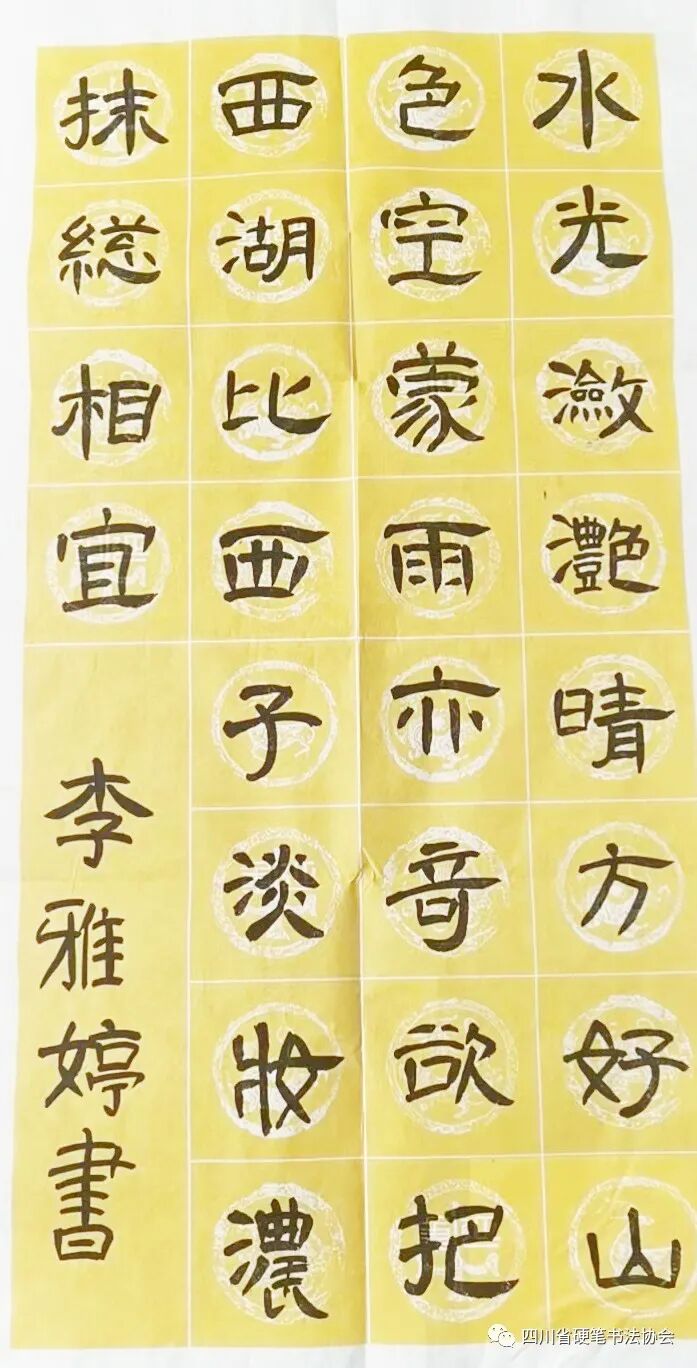 水光瀲灩晴方好山
色空蒙雨亦奇欲把
西湖比西子淡妝濃
抹総相宜
李雅婷書
四川省硬笔书法协会